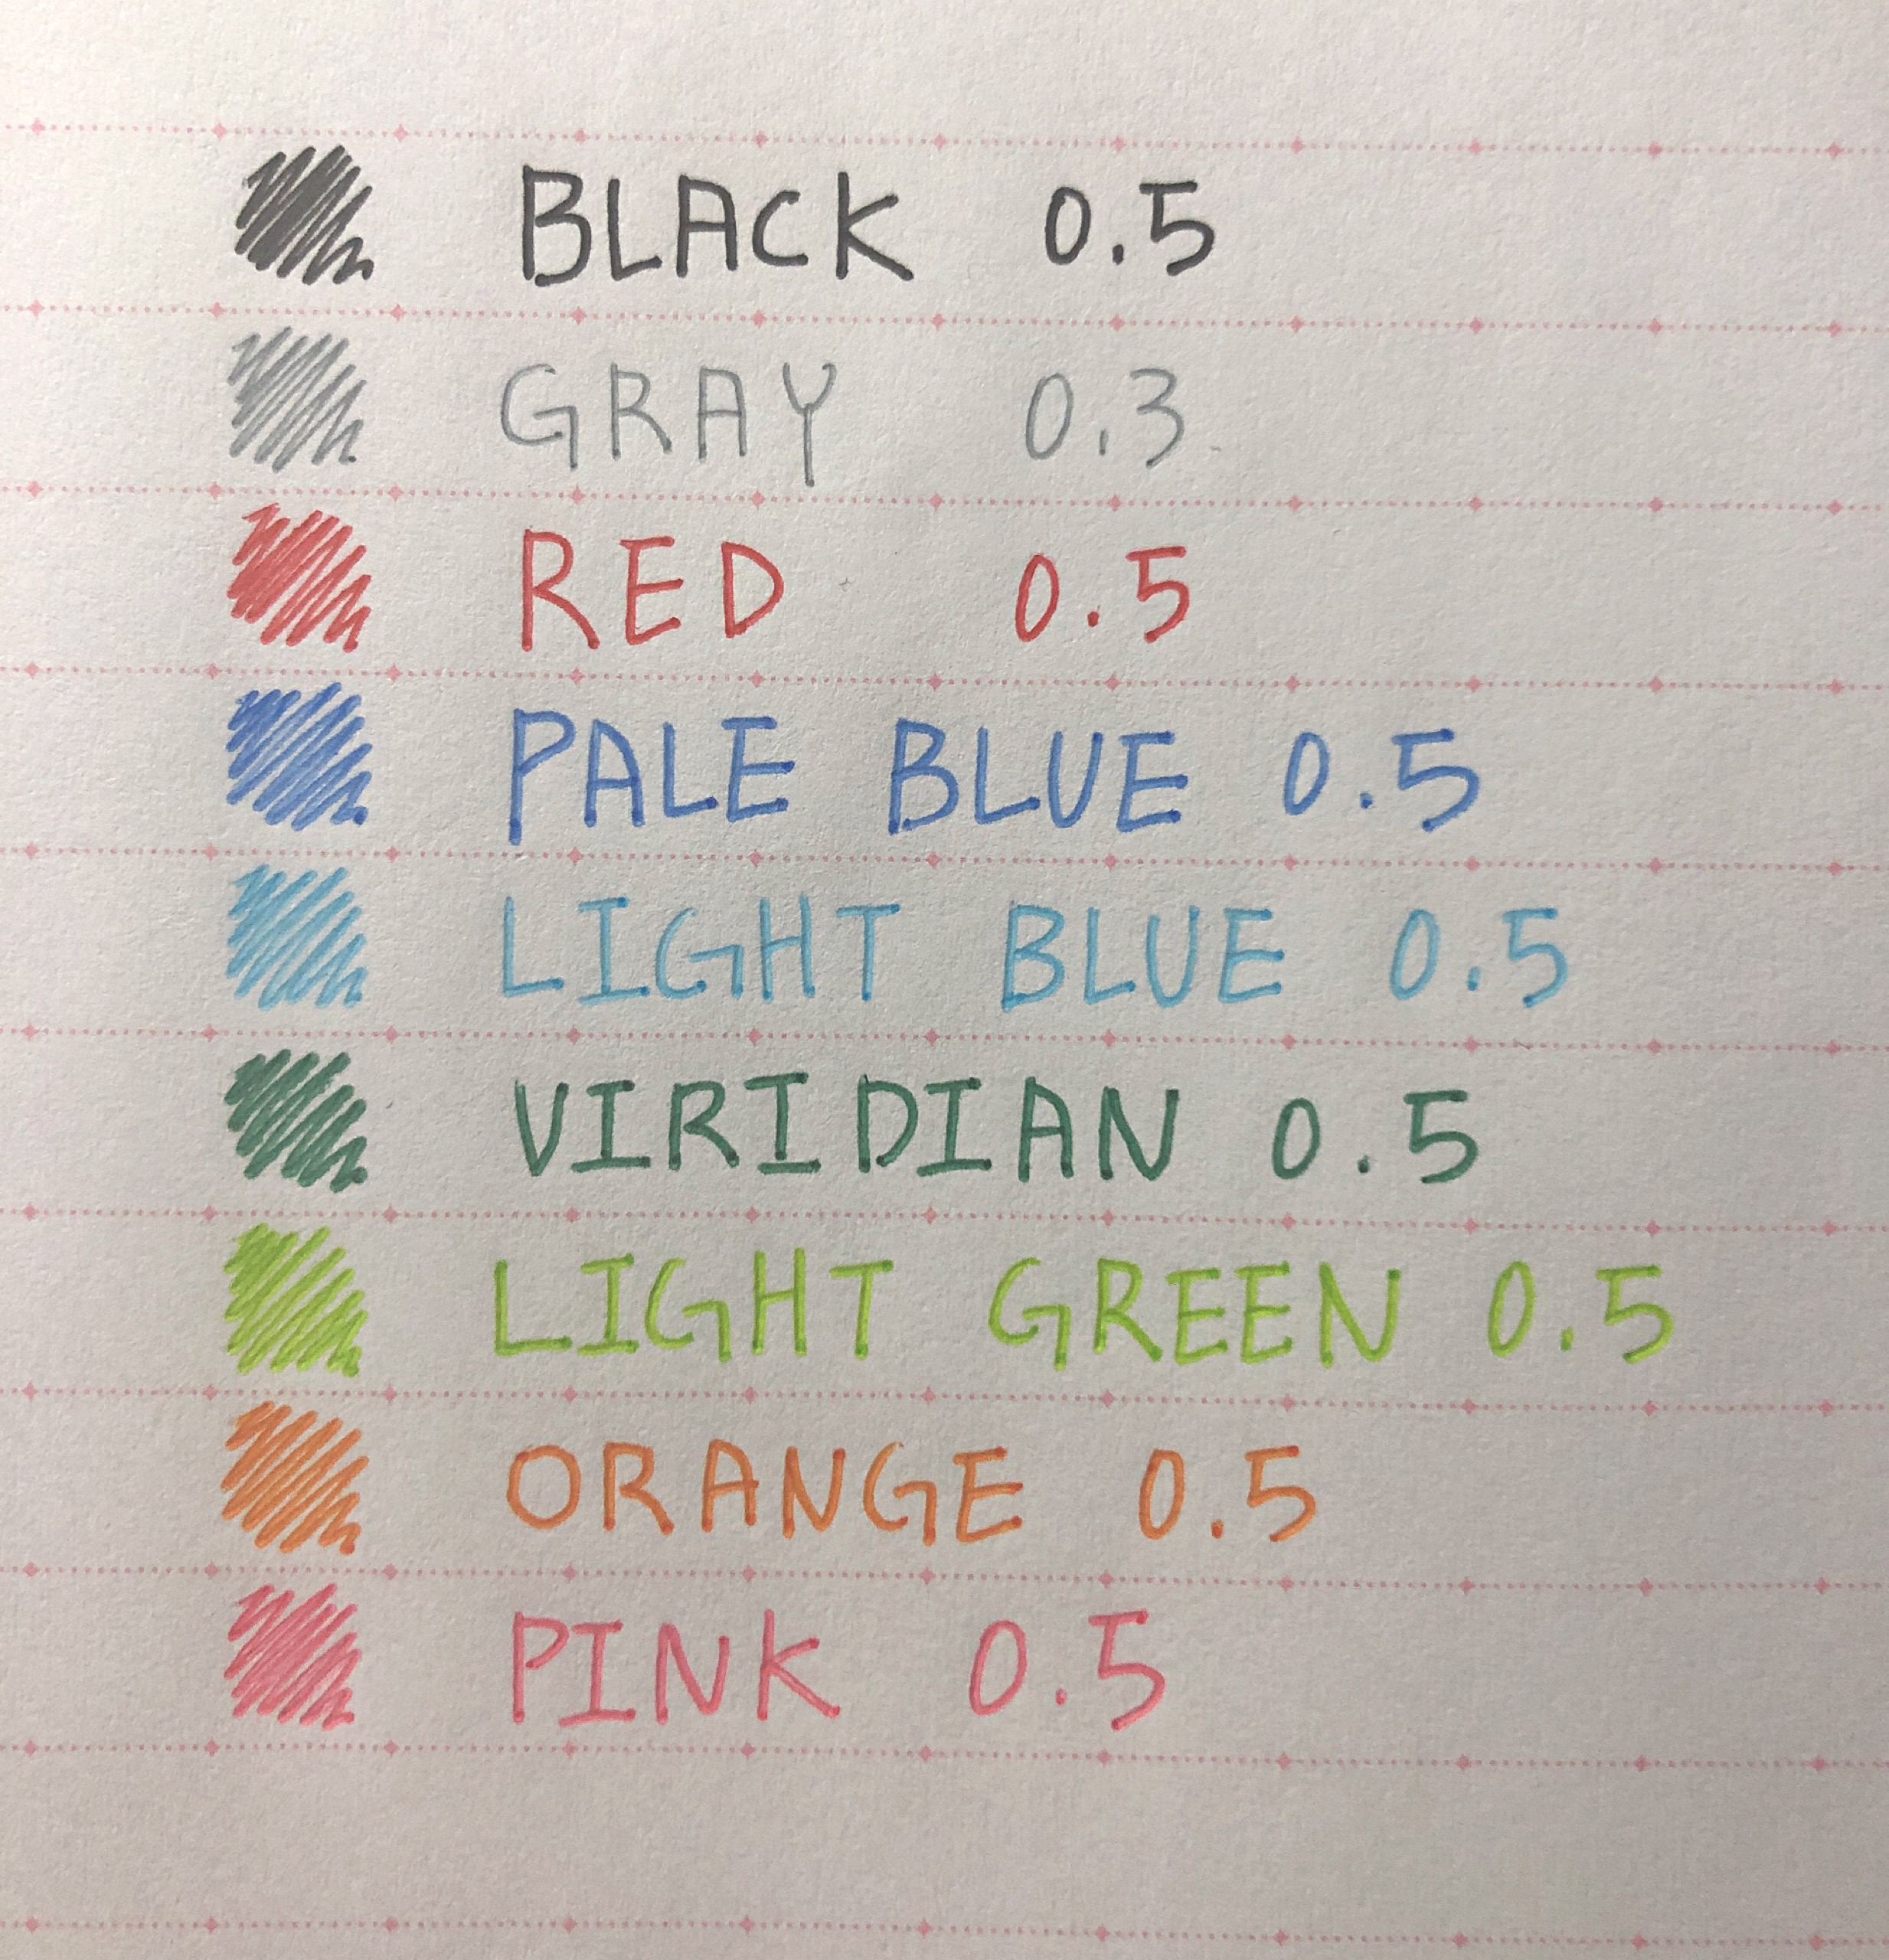 BLACK 0.5
GRAY 0.3
RED 0.5
PALE BLUE 0.5
LIGHT BLUE 0.5
VIRIDIAN 0.5
LIGHT GREEN 0.5
ORANGE 0.5
PINK 0.5